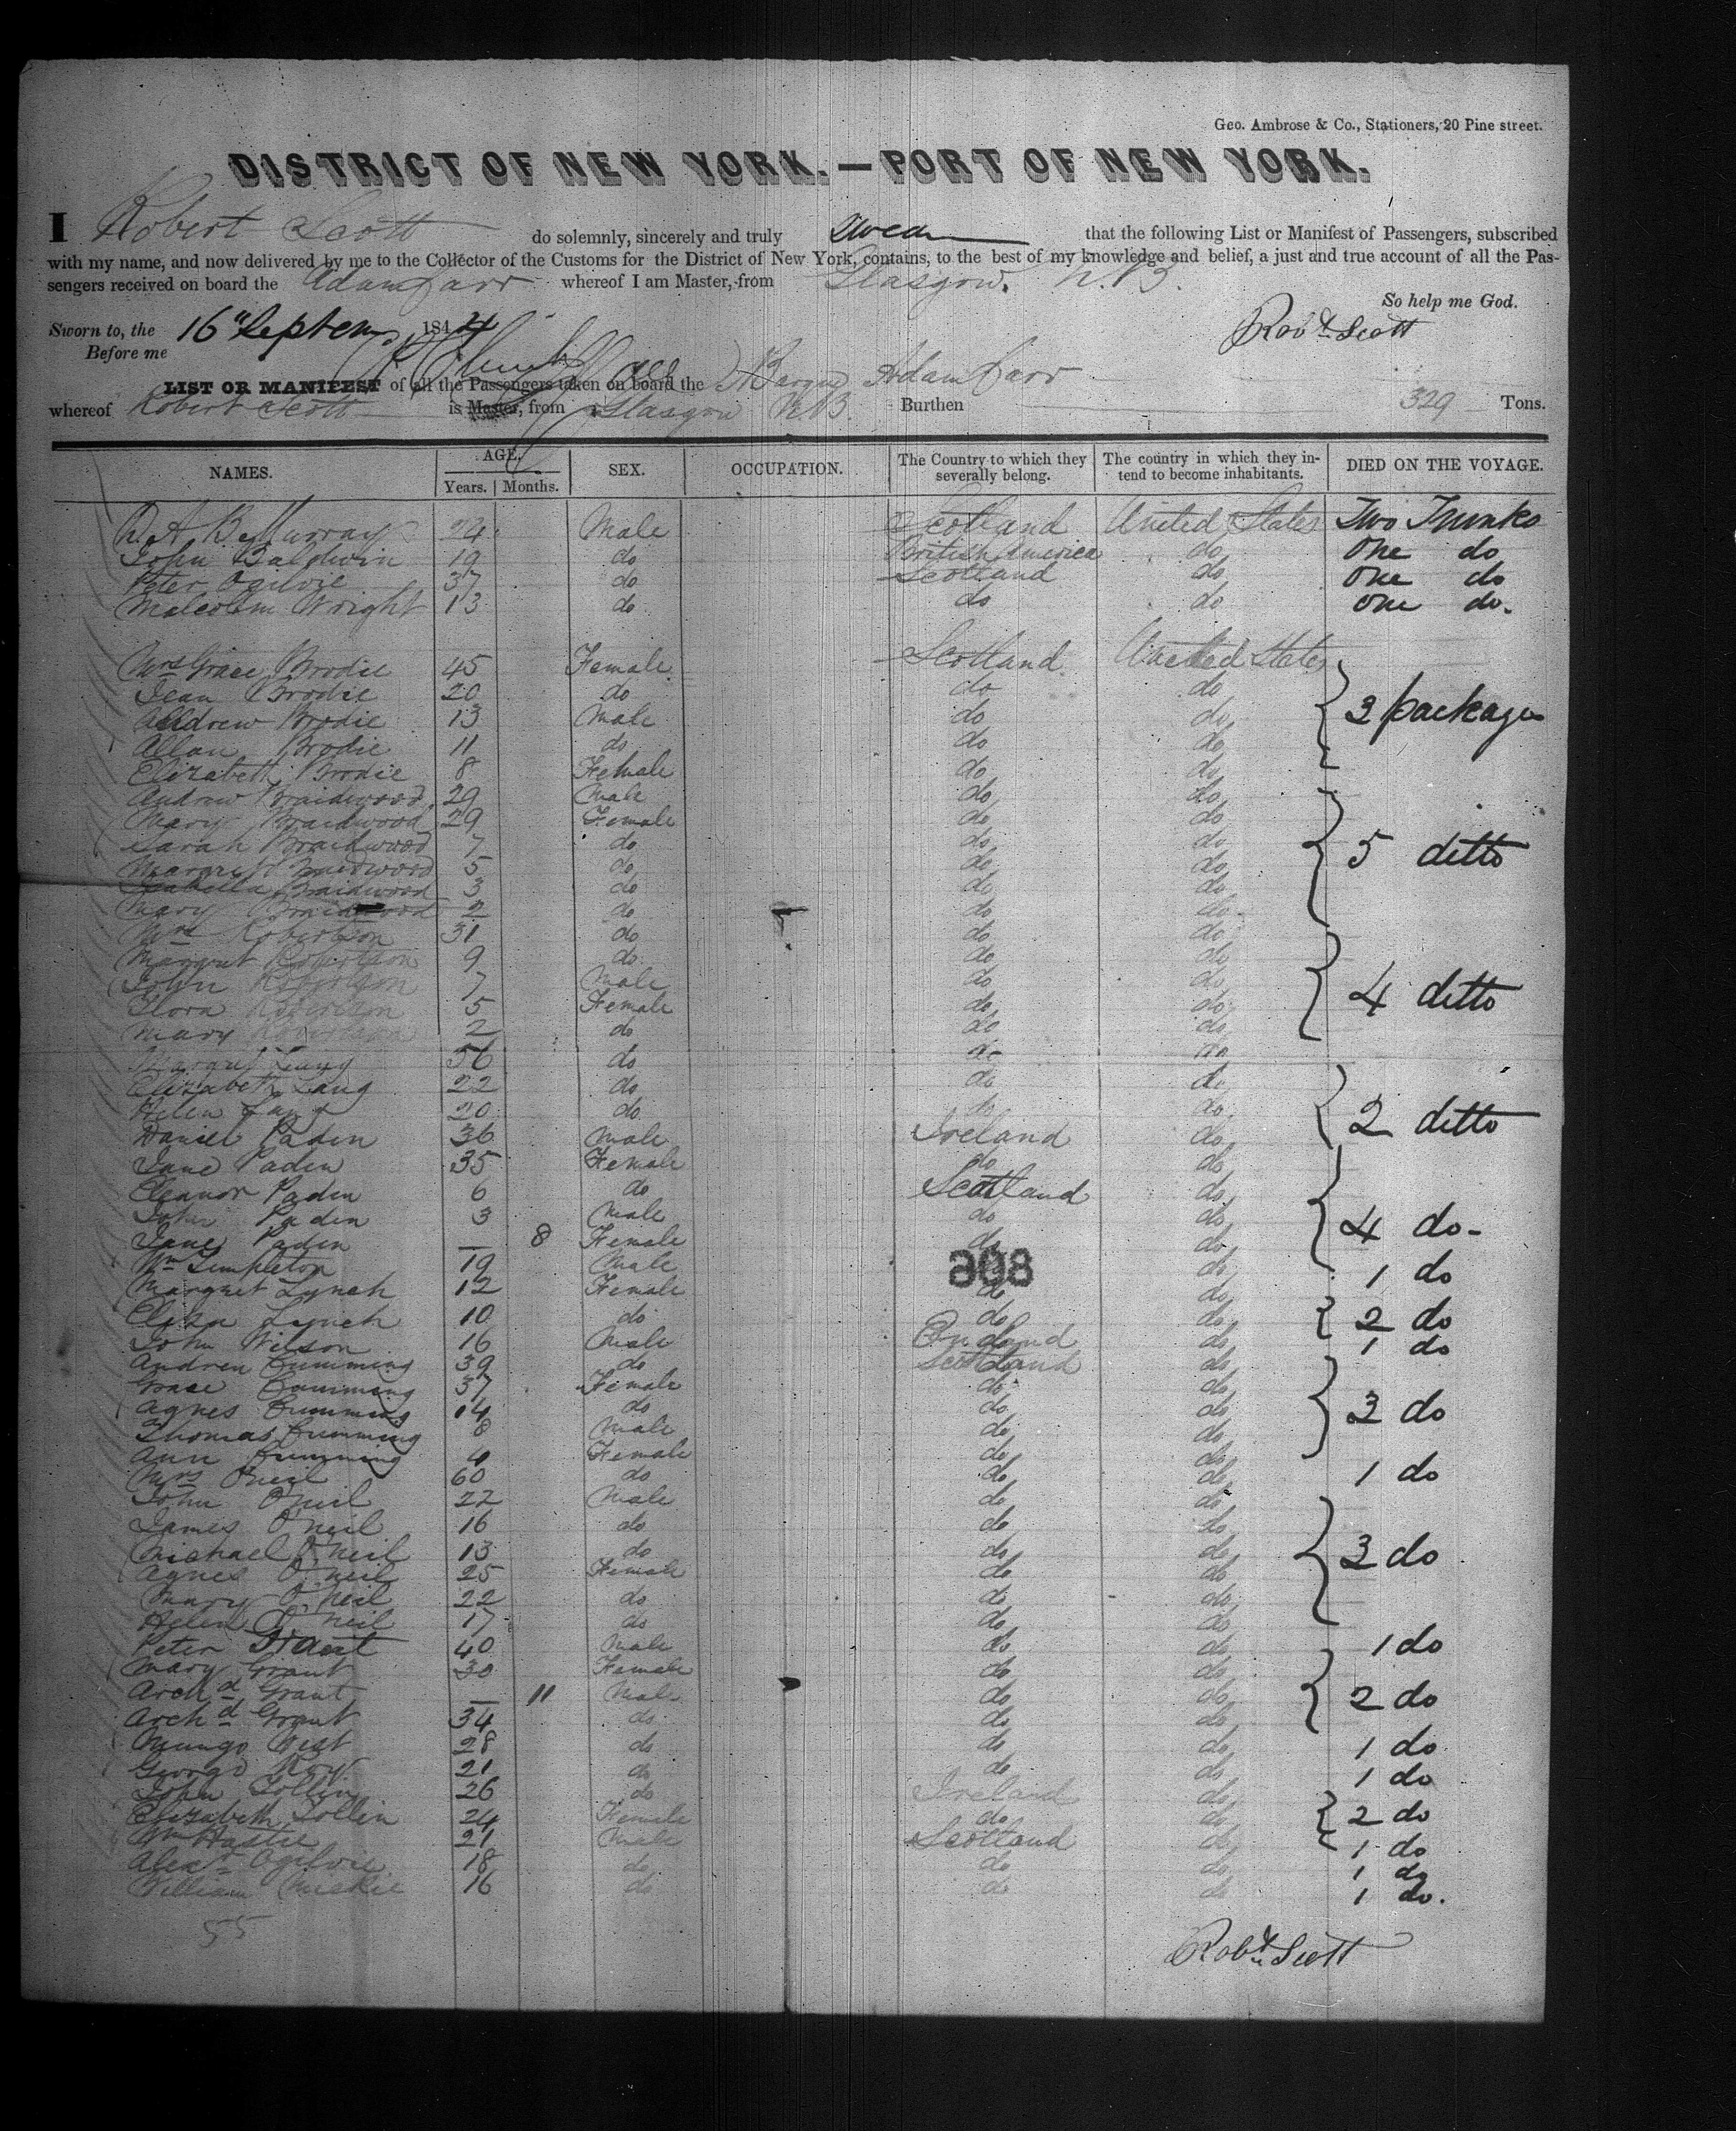 Geo. Ambrose & Co., Stationers, 20 Pine street.
DISTRICT OF NEW YORK.—PORT OF NEW YORK.
I Robert Scott do solemnly, sincerely and truly swear that the following List or Manifest of Passengers, subscribed
with my name, and now delivered by me to the Collector of the Customs for the District of New York, contains, to the best of my knowledge and belief, a just and true account of all the Pas-
sengers received on board the Adam Carr whereof I am Master, from Glasgow. N.B.
So help me God.
Sworn to, the 16" Septem 1844 Robt Scott
Before me
LIST OR MANIFEST of all the Passengers taken on board the Barque Adam Carr
whereof Robert Scott is Master, from Glasgow N.B. Burthen 329 Tons.
NAMES. AGE. Years. Months. SEX. OCCUPATION. The Country to which they severally belong. The country in which they intend to become inhabitants. DIED ON THE VOYAGE.
Murray 24 Male Scotland United States Two Trunks
John Baldwin 19 do British America do One do
Peter Ogilvie 37 do Scotland do One do
Malcolm Wright 13 do do do One do.
Mrs Grace Brodie 45 Female Scotland United States
Jean Brodie 20 do do do
Andrew Brodie 13 Male do do 3 packages
Allan Brodie 11 do do do
Elizabeth Brodie 8 Female do do
Andrew Braidwood 29 Male do do
Mary Braidwood 29 Female do do
Sarah Braidwood 7 do do do 5 ditto
Margret Braidwood 5 do do do
Isabella Braidwood 3 do do do
Mary Braidwood 2 do do do
Mrs Robertson 31 do do do
Margret Robertson 9 do do do
John Robertson 7 Male do do 4 ditto
Flora Robertson 5 Female do do
Mary Robertson 2 do do do
Margret Lang 56 do do do
Elizabeth Lang 22 do do do
Helen Lang 20 do do do 2 ditto
Daniel Paden 36 Male Ireland do
Jane Paden 35 Female do do
Eleanor Paden 6 do Scotland do
John Paden 3 Male do do 4 do-
Jane Paden — 8 Female do do
Wm Templeton 19 Male do do 1 do
Margret Lynch 12 Female do do
Eliza Lynch 10 do do do 2 do
John Wilson 16 Male England do 1 do
Andrew Cumming 39 do Scotland do
Grace Cumming 37 Female do do
Agnes Cumming 14 do do do 3 do
Thomas Cumming 8 Male do do
Ann Cumming 4 Female do do
Mrs O'Neil 60 do do do 1 do
John O'Neil 22 Male do do
James O'Neil 16 do do do
Michael O'Neil 13 do do do 3 do
Agnes O'Neil 25 Female do do
Mary O'Neil 22 do do do
Helen O'Neil 17 do do do
Peter Grant 40 Male do do 1 do
Mary Grant 30 Female do do
Archd Grant — 11 Male do do 2 do
Archd Grant 34 do do do
Mungo 28 do do do 1 do
George 21 do do do 1 do
John Collin 26 do Ireland do
Elizabeth Collin 24 Female do do 2 do
Wm Hastie 21 Male Scotland do 1 do
Alexr Ogilvie 18 do do do 1 do
William 16 do do do 1 do.
55
Robt Scott